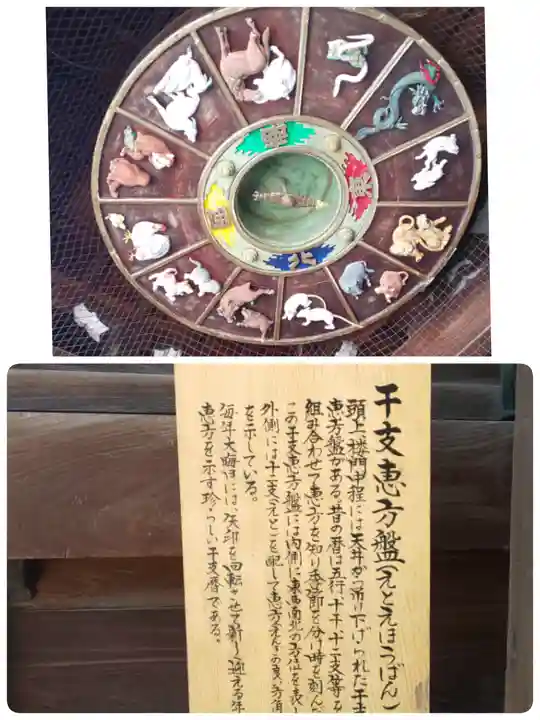 南
東
西
北
干支恵方盤(えとえほうばん)
頭上楼門中程には天井から吊り下げられた干支
恵方盤がある。昔の暦は五行、十干、十二支等を
組み合わせて恵方を知り季節を分け時を刻んだ
この干支恵方盤には内側に東西南北の方位を表し
外側には十二支(えと)を配して恵方(えほう)の良い方角
を示している。
毎年大晦日には、矢印を回転させて新しく迎える年の
恵方を示す珍らしい干支暦である。